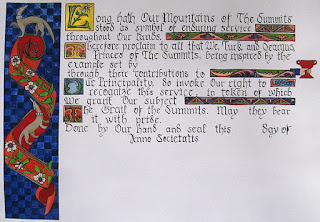 Long hath Our Mountains of The Summits
stood as symbol of enduring service
throughout Our lands.
Therefore proclaim to all that We, Turk and Geannus
Princes of The Summits, being inspired by the
example set by
through their contributions to
Our Principality, do invoke Our right to
recognize this service; in token of which
We grant Our subject
The Grail of the Summits. May they bear
it with pride.
Done by Our hand and seal this day of
Anno Societatis